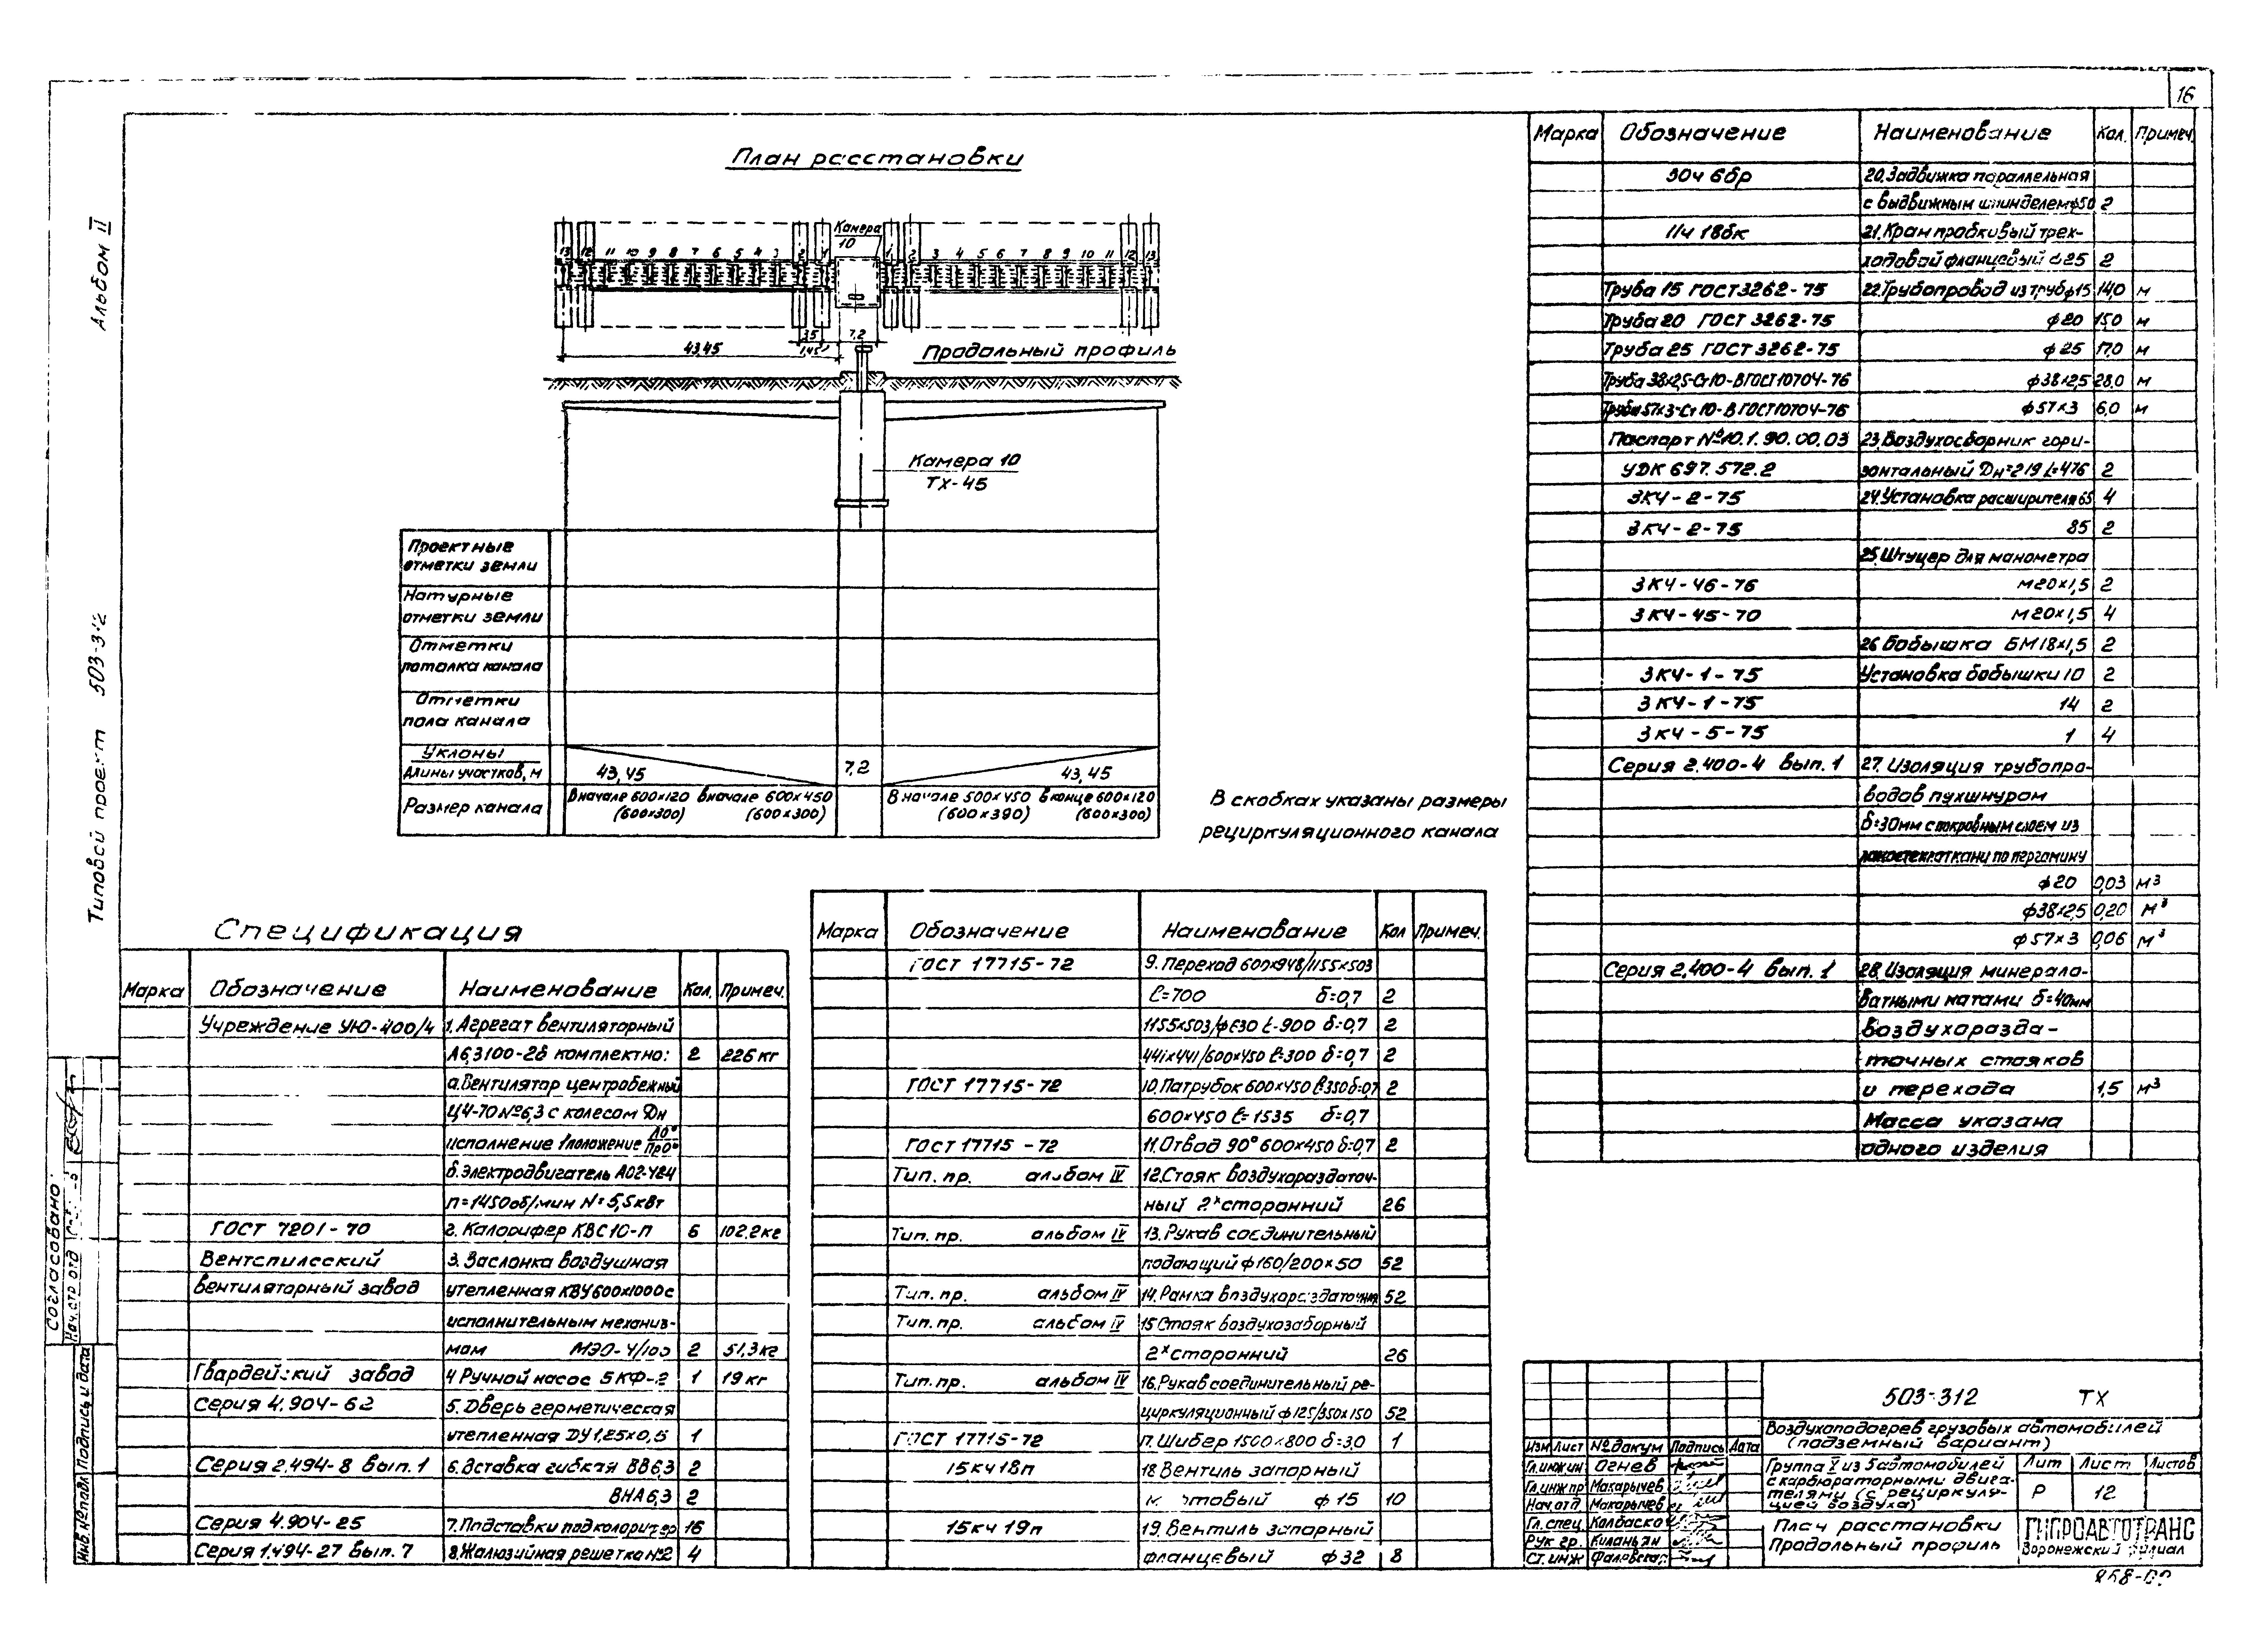 16
Альбом II
Типовой проект 503-312
План расстановки
Камера
10
13 12 11 10 9 8 7 6 5 4 3 2 1
1 2 3 4 5 6 7 8 9 10 11 12 13
3,5
7,2
43,45
1,45
Продольный профиль
Камера 10
ТХ-45
Проектные
отметки земли
Натурные
отметки земли
Отметки
потолка канала
Отметки
пола канала
Уклоны
Длины участков, м
43,45
7,2
43,45
Размер канала
В начале 600×120 В начале 600×450
(600×300) (600×300)
В начале 500×450 в конце 600×120
(600×390) (600×300)
В скобках указаны размеры
рециркуляционного канала
Спецификация
Марка Обозначение Наименование Кол. Примеч.
Учреждение УЮ-400/4 1. Агрегат вентиляторный
А6,3100-2в комплектно: 2 226 кг
а. Вентилятор центробежный
Ц4-70 №6,3 с колесом Дн
исполнение 1 положение Л0°/Пр0°
б. Электродвигатель АО2-42-4
n=1450 об/мин N=5,5 кВт
ГОСТ 7201-70 2. Калорифер КВС10-П 6 102,2 кг
Вентспилсский 3. Заслонка воздушная
вентиляторный завод утепленная КВУ 600×1000 с
исполнительным механиз-
мом МЭО-4/100 2 51,3 кг
Гвардейский завод 4 Ручной насос БКФ-2 1 19 кг
Серия 4.904-62 5. Дверь герметическая
утепленная ДУ 1,25×0,5 1
Серия 2.494-8 вып. 1 6. Вставка гибкая ВВ6,3 2
ВНА6,3 2
Серия 4.904-25 7. Подставки под колорифер 16
Серия 1.494-27 вып. 7 8. Жалюзийная решетка №2 4
Марка Обозначение Наименование Кол Примеч.
ГОСТ 17715-72 9. Переход 600×948/1155×503
ℓ=700 δ=0,7 2
1155×503/ф630 ℓ-900 δ=0,7 2
441×441/600×450 ℓ=300 δ=0,7 2
ГОСТ 17715-72 10. Патрубок 600×450 ℓ350 δ=0,7 2
600×450 ℓ=1535 δ=0,7
ГОСТ 17715-72 11. Отвод 90° 600×450 δ=0,7 2
Тип. пр. альбом IV 12. Стояк воздухораздаточ-
ный 2х сторонний 26
Тип. пр. альбом IV 13. Рукав соединительный
подающий ф160/200×50 52
Тип. пр. альбом IV 14. Рамка воздухораздаточная 52
Тип. пр. альбом IV 15 Стояк воздухозаборный
2х сторонний 26
Тип. пр. альбом IV 16. Рукав соединительный ре-
циркуляционный ф125/350×150 52
ГОСТ 17715-72 17. Шибер 1500×800 δ=3,0 1
15кч18п 18 Вентиль запорный
ф 15 10
15кч19п 19. Вентиль запорный
фланцевый ф32 8
Марка Обозначение Наименование Кол. Примеч.
30ч 6бр 20. Задвижка параллельная
с выдвижным шпинделем ф50 2
11ч 18бк 21. Кран пробковый трех-
ходовой фланцевый ф25 2
Труба 15 ГОСТ 3262-75 22. Трубопровод из труб ф15 14,0 м
Труба 20 ГОСТ 3262-75 ф20 15,0 м
Труба 25 ГОСТ 3262-75 ф25 17,0 м
Труба 38×2,5-Ст10-В ГОСТ 10704-76 ф38×2,5 28,0 м
Труба 57×3-Ст10-В ГОСТ 10704-76 ф57×3 6,0 м
Паспорт №10.1.90.00.03 23. Воздухосборник гори-
УДК 697.572.2 зонтальный Дн=219 L=476 2
ЗКЧ-2-75 24. Установка расширителя 65 4
ЗКЧ-2-75 85 2
25. Штуцер для манометра
ЗКЧ-46-76 М20×1,5 2
ЗКЧ-45-70 М20×1,5 4
26 Бобышка БМ18×1,5 2
ЗКЧ-1-75 Установка бобышки 10 2
ЗКЧ-1-75 14 2
ЗКЧ-5-75 1 4
Серия 2.400-4 вып. 1 27. Изоляция трубопро-
водов пухшнуром
δ=30мм с покровным слоем из
лакостеклоткани по пергамину
ф20 0,03 м³
ф38×2,5 0,20 м³
ф57×3 0,06 м³
Серия 2.400-4 вып. 1 28. Изоляция минерало-
ватными матами δ=40мм
воздухоразда-
точных стояков
и перехода 1,5 м³
Масса указана
одного изделия
503-312 ТХ
Воздухоподогрев грузовых автомобилей
(подземный вариант)
Изм Лист № докум Подпись Дата
Гл.инж ин Огнев
Гл.инж пр Макарычев
Нач.отд Макарычев
Гл. спец. Колбаско
Рук гр.
Ст. инж
Группа X из 5 автомобилей
с карбюраторными двига-
телями (с рециркуля-
цией воздуха)
Лит Лист Листов
Р 12
План расстановки
Продольный профиль
ГИПРОАВТОТРАНС
Воронежский филиал
Согласовано
Нач. стр. отд
Инв № подл Подпись и дата